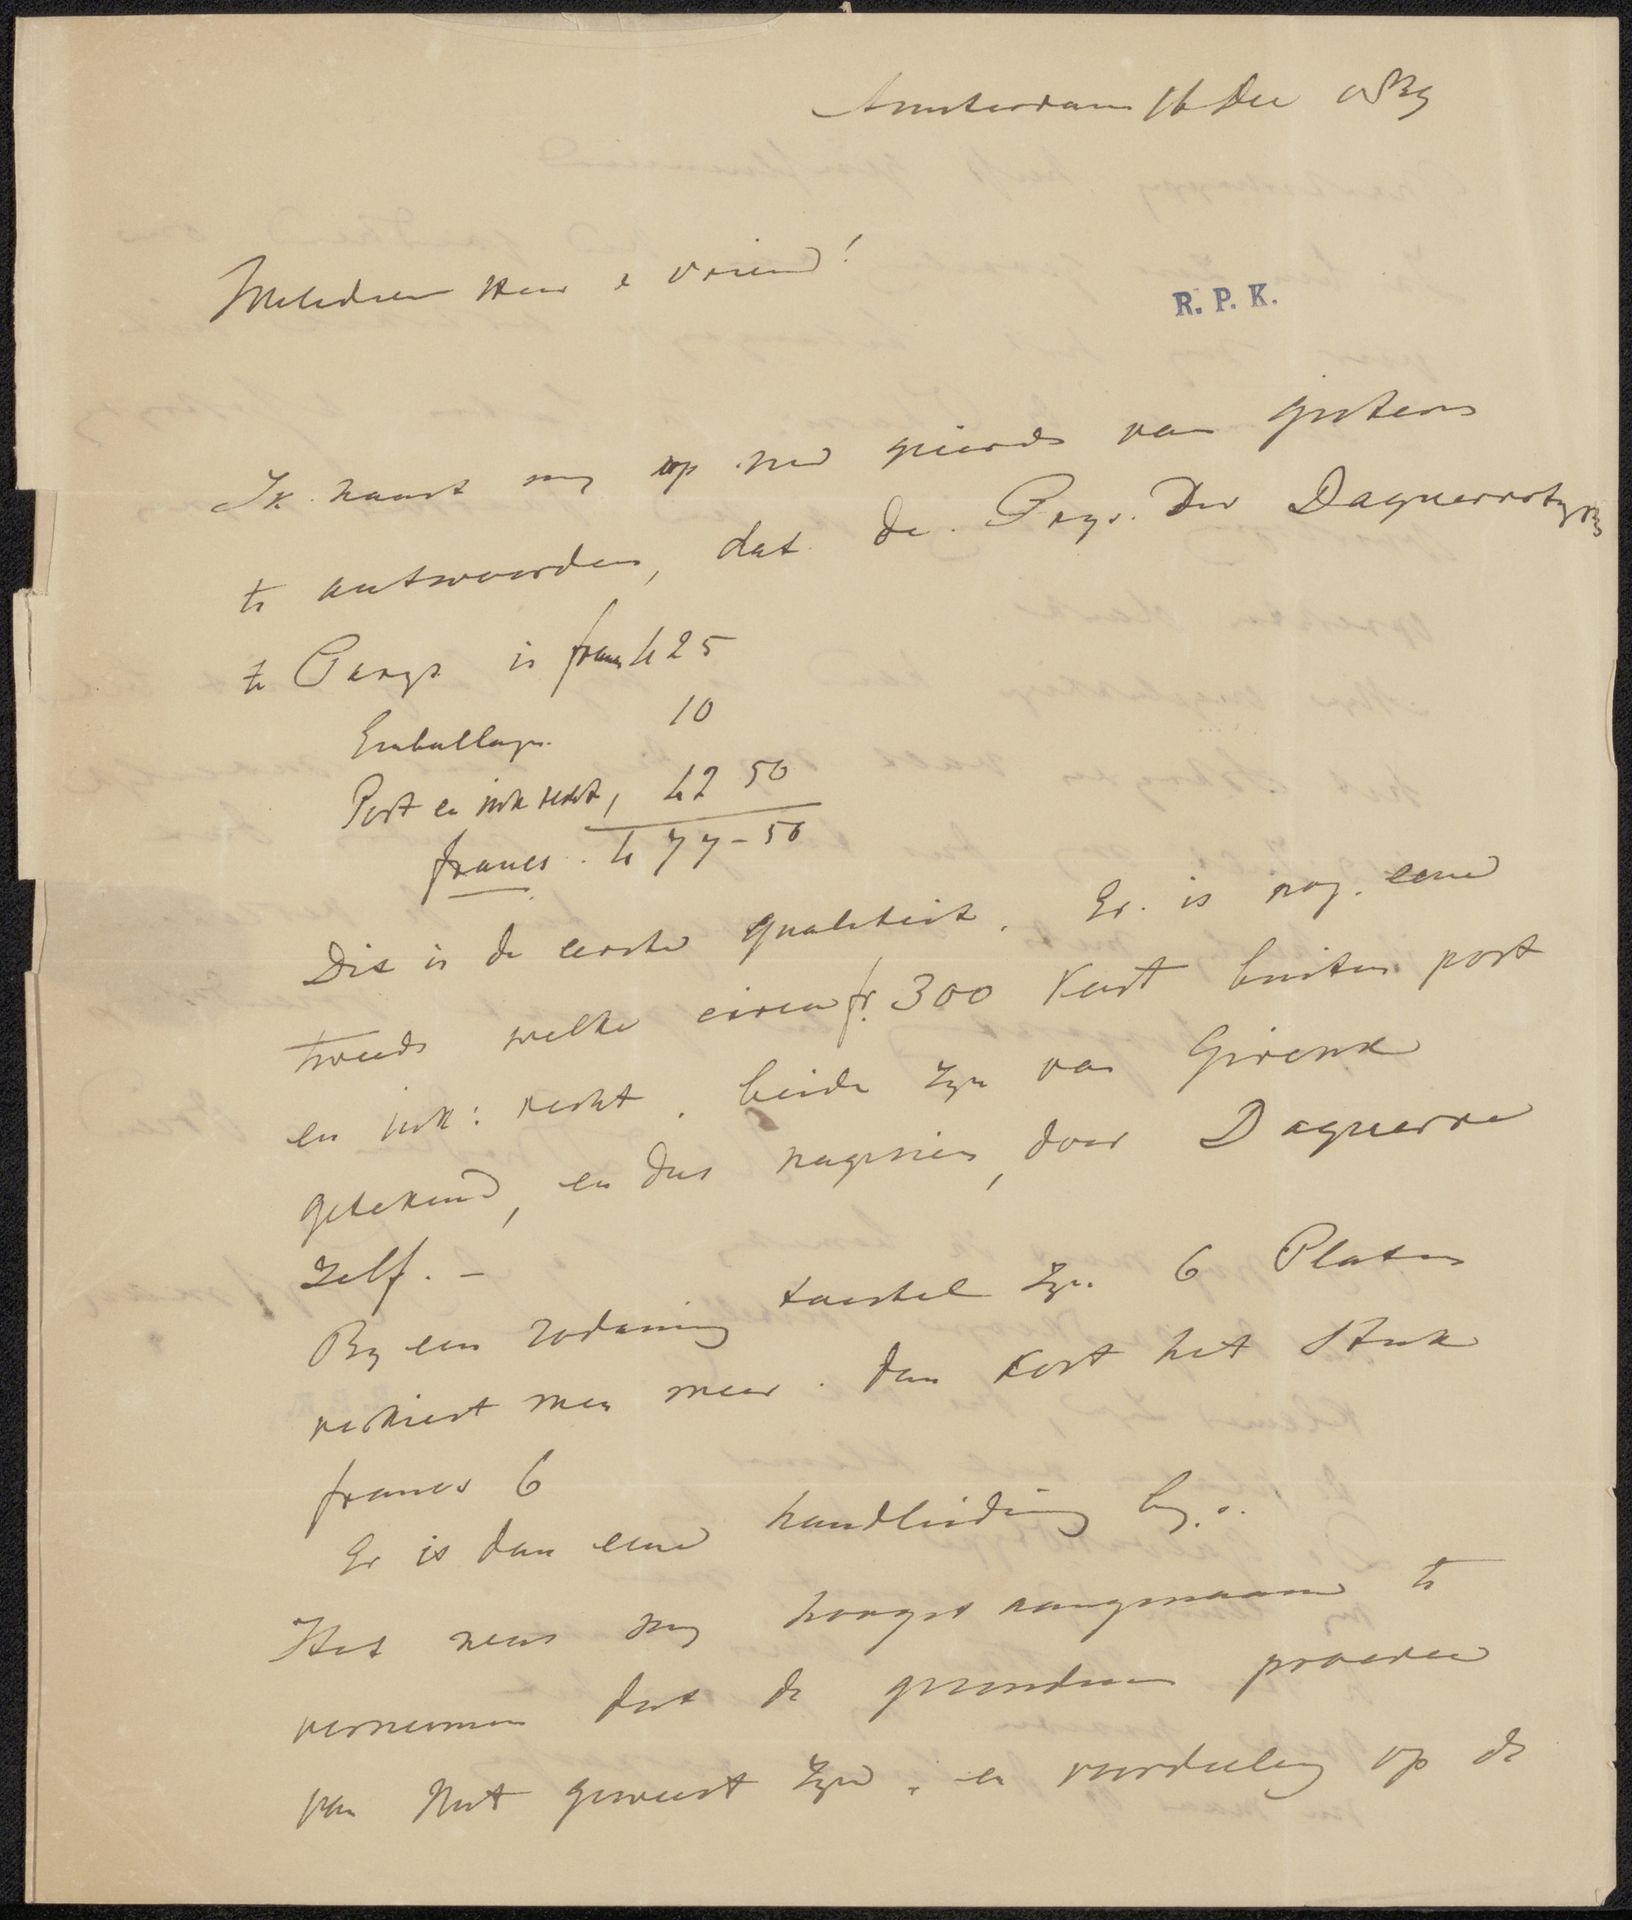 Amsterdam 16 Dec 1839
WelEdele Heer & Vriend!
R. P. K.
Ik haast my op uw geëerde van gisteren
te antwoorden, dat de Prys der Daguerrotypes
te Parys is francs 425
Emballage 10
Port en ink recht, 42 50
francs. 477-50
Dit is de eerste qualiteit. Er is nog eene
tweede welke circa fr. 300 kost buiten port
en ink: recht. beide zyn van Giroux
getekend, en dus nagezien, door Daguerre
zelf. –
By een zodanig toestel zyn 6 Platen
verkiest men meer. dan kost het Stuk
francs 6
Er is dan eene handleiding by.
Het was my hoogst aangenaam te
vernemen dat de gezondene proeven
van Nut geweest zyn. en voordeelig op de